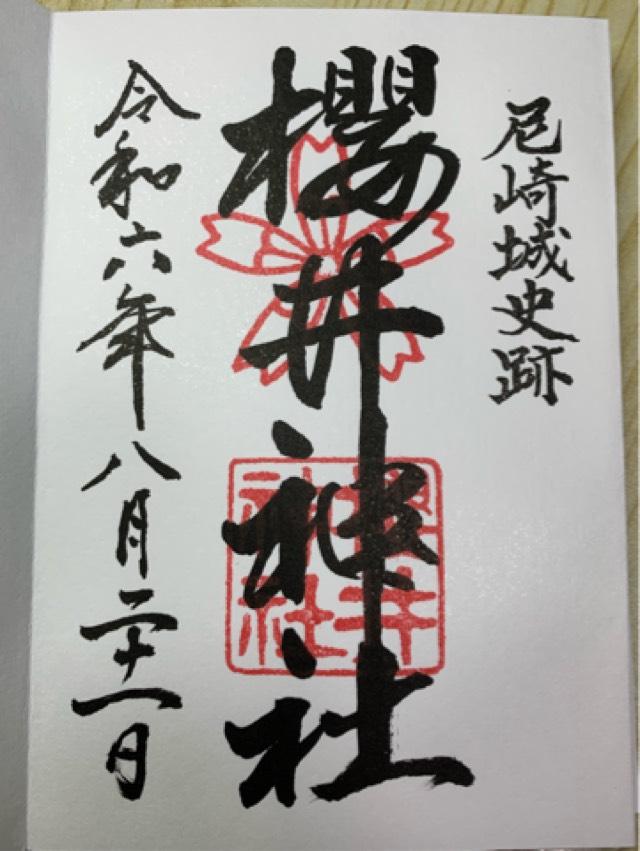 尼崎城史跡
櫻井神社
櫻井
神社
令和六年八月二十一日